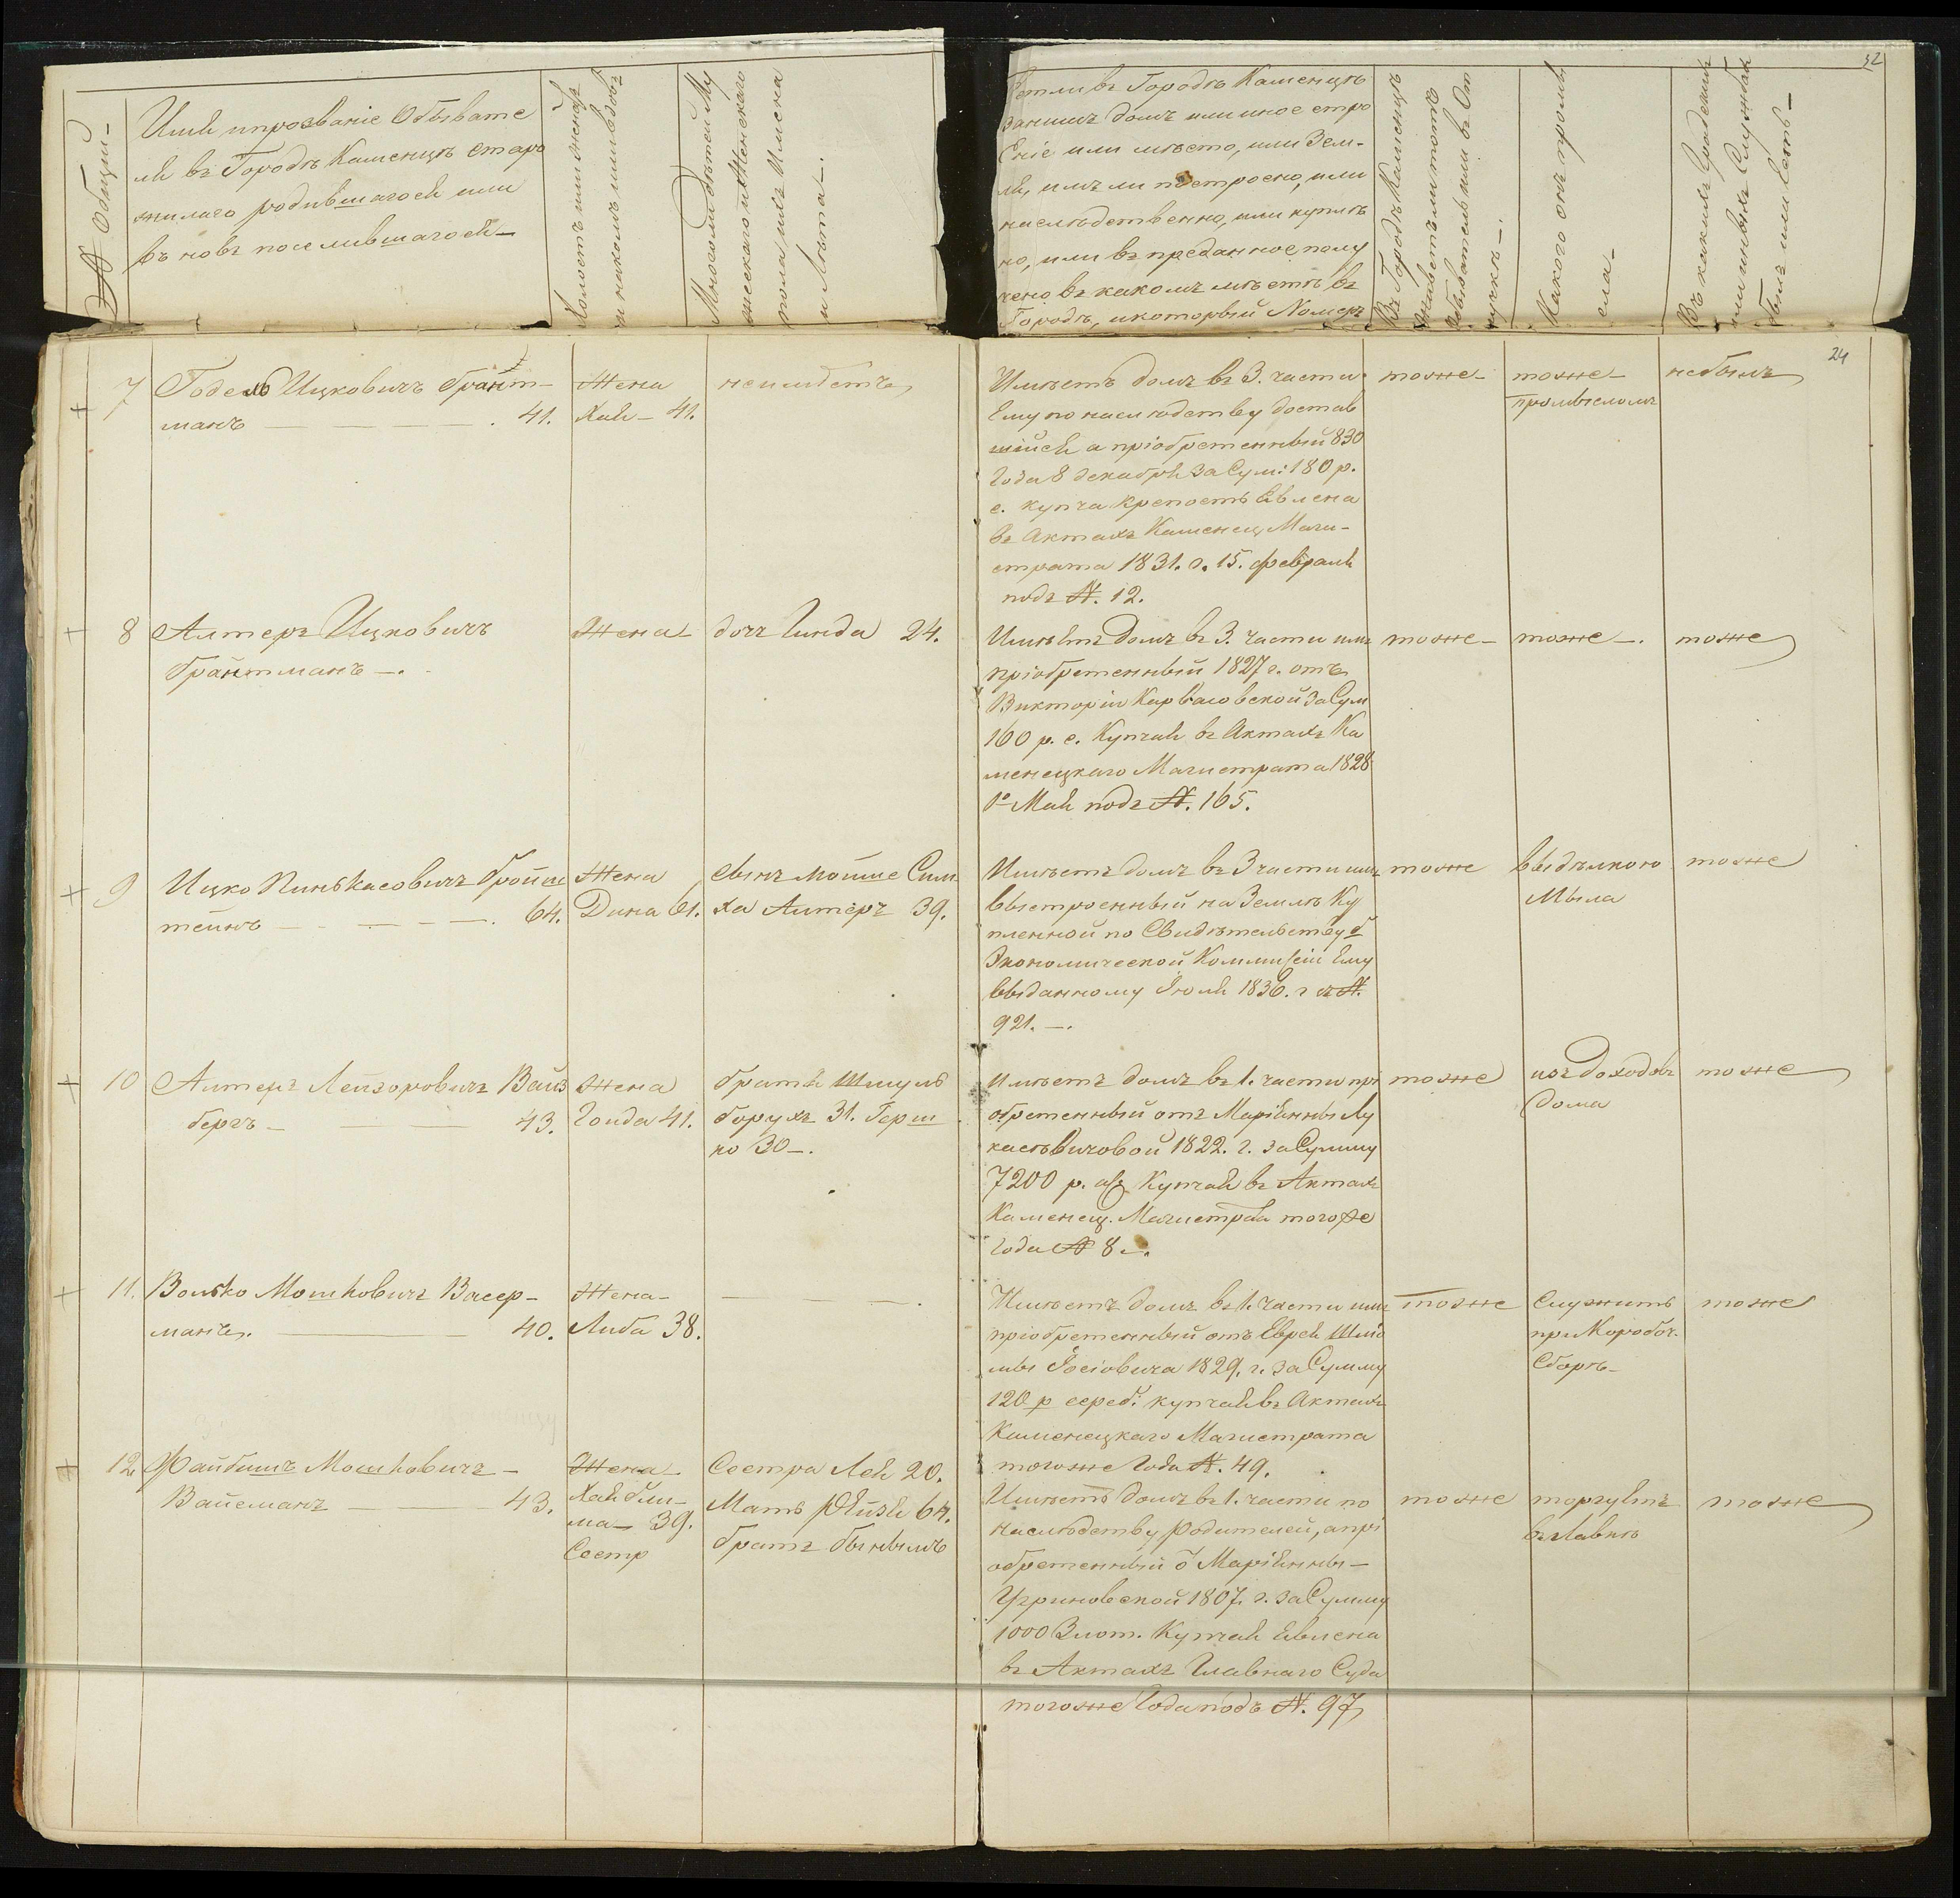 № Общий
Имя и прозваніе Обывате
ля въ Городѣ Каменцѣ старо
жилаго родившагося или
въ новѣ поселившагося
Холостъ или женатъ
и на комъ или вдовъ
Многоли дѣтей Му
жескаго и Женскаго
пола, ихъ Имена
и Лѣта
Естли въ Городѣ Каменцѣ
за нимъ домъ или иное стро
еніе или мѣсто, или Зем-
ля, имъ ли построено, или
наслѣдственно, или купле
но, или въ преданное полу
чено, въ какомъ мѣстѣ въ
Городѣ, и который Номеръ
Въ Городѣ Каменцѣ
живетъ ли тотъ
Обыватель или въ От
лучкѣ
Какого онъ промы
сла
Въ какихъ Городскихъ
службахъ
былъ или есть
52
24
7
Годель Ицковичъ Брант-
манъ — 41.
Жена
Хая — 41.
неимѣетъ
Имѣетъ домъ въ 3. части
Ему по наслѣдству достав
шійся а пріобретенный 830
Года 8 декабря за Сум: 180 р.
с. купча крепость явлена
въ Актахъ Каменец. Маги-
страта 1831. г. 15. февраля
подъ №. 12.
тоже
тоже
промысломъ
небылъ
8
Алтеръ Ицковичъ
Брайтманъ
Жена
дочь Гинда 24.
Имѣетъ Домъ въ 3. части имъ
пріобретенный 1827 г. отъ
Викторіи Карвасовской за Сум
160 р. с. Купчая въ Актахъ Ка
менецкаго Магистрата 1828
1º Мая подъ №. 165.
тоже
тоже
тоже
9
Ицко Пинькасовичъ Бройш
тейнъ — 64.
Жена
Дина 61.
Сынъ Мойше Сим
ха Алтеръ 39.
Имѣетъ домъ въ 3 части имъ
выстроенный на Землѣ Ку
пленной по Свидѣтельству
Экономической Коммисіи Ему
выданному Іюля 1836. г №
921.
тоже
выдѣлкою
Мыла
тоже
10
Алтеръ Лейзоровичъ Вайз
бергъ — 43.
Жена
Гольда 41.
братья Шмуль
борухъ 31. Герш
ко 30
имѣетъ домъ въ 1. части прі
обретенный отъ Маріянны Лу
касѣвичовой 1822. г. за Сумму
7200 р. асс Купчая въ Актахъ
Каменец. Магистрата тогоже
Года № 8
тоже
изъ доходовъ
Дома
тоже
11.
Волько Мошковичъ Васер-
манъ. — 40.
Жена
Либа 38.
Имѣетъ домъ въ 1. части имъ
пріобретенный отъ Еврея Шлiо
мы Іосіовича 1829. г. за Сумму
120 р сереб. купчая въ Актахъ
Каменецкаго Магистрата
тогоже Года №. 49.
тоже
Служитъ
при Коробоч.
Сборѣ
тоже
12
Файбишъ Мошковичъ
Вайсманъ — 43.
Жена
Хая бли-
ма 39.
Сестр
Сестра Лея 20.
Мать Рейзя 64.
братъ
Имѣетъ домъ въ 1. части по
наслѣдству Родителей, а прі
обретенный ѿ Маріянны
Угриновской 1807. г. за Сумму
1000 Злот. Купчая явлена
въ Актахъ Главнаго Суда
тогоже Года подъ №. 97
тоже
торгуетъ
въ Лавкѣ
тоже